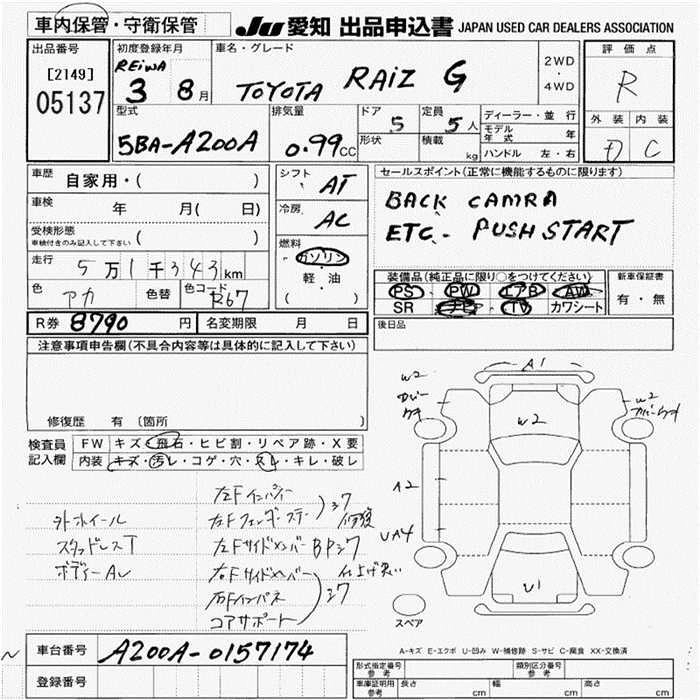 車内保管・守衛保管
JU 愛知 出品申込書 JAPAN USED CAR DEALERS ASSOCIATION
出品番号
[2149]
05137
初度登録年月
REIWA
3 8月
車名・グレード
TOYOTA RAIZ G
2WD
・
4WD
評価点
R
外装 内装
D C
型式
5BA-A200A
排気量
0.99CC
ドア
5
形状
定員
5人
積載
kg
ディーラー・並行
モデル年式 年
ハンドル 左・右
車歴 自家用・( )
車検 年 月( 日)
受検形態
車検付きのみ記入して下さい ( )
走行 5万1千343km
色 アカ
色替
色コード R67
シフト AT
冷房 AC
燃料
ガソリン
軽・油
( )
セールスポイント(正常に機能するものに限ります)
BACK CAMRA
ETC. PUSH START
装備品(純正品に限り○をつけてください)
PS・PW・エアB・AW
SR・ナビ・TV・カワシート
新車保証書
有・無
R券 8790 円
名変期限 月 日
後日品
注意事項申告欄(不具合内容等は具体的に記入して下さい)
修復歴 有 〔箇所 〕
検査員
記入欄
FW キズ・飛石・ヒビ割・リペア跡・X要
内装 キズ・汚レ・コゲ・穴・スレ・キレ・破レ
外ホイール
スタッドレスT
ボディーAレ
左Fインパネ
左Fフェンダーステー
シワ
修復
左Fサイドメンバー BPシワ
右Fサイドメンバー
仕上げ悪い
右Fインパネ
シワ
コアサポート
A1
W2
カバーウキ
W2
W2
カバーウキ
A2
UA4
U1
スペア
A-キズ E-エクボ U-凹み W-補修跡 S-サビ C-腐食 XX-交換済
車台番号 A200A-0157174
登録番号
形式指定番号
参考
類別区分番号
参考
車庫証明用
参考
長さ cm
幅 cm
高さ cm